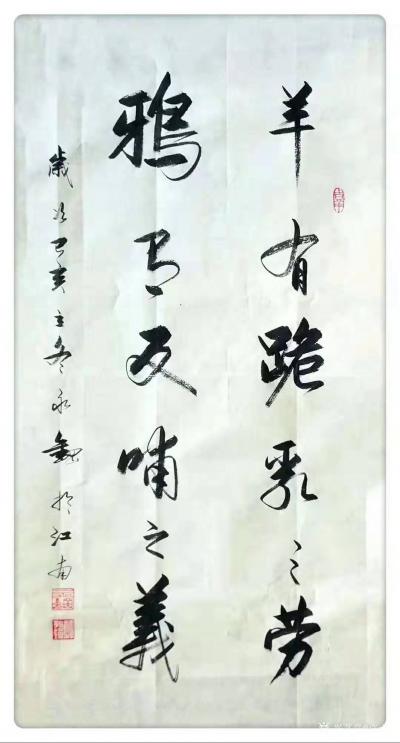 羊有跪乳之劳
鸦有反哺之義
歲次己亥立冬永龝於江南